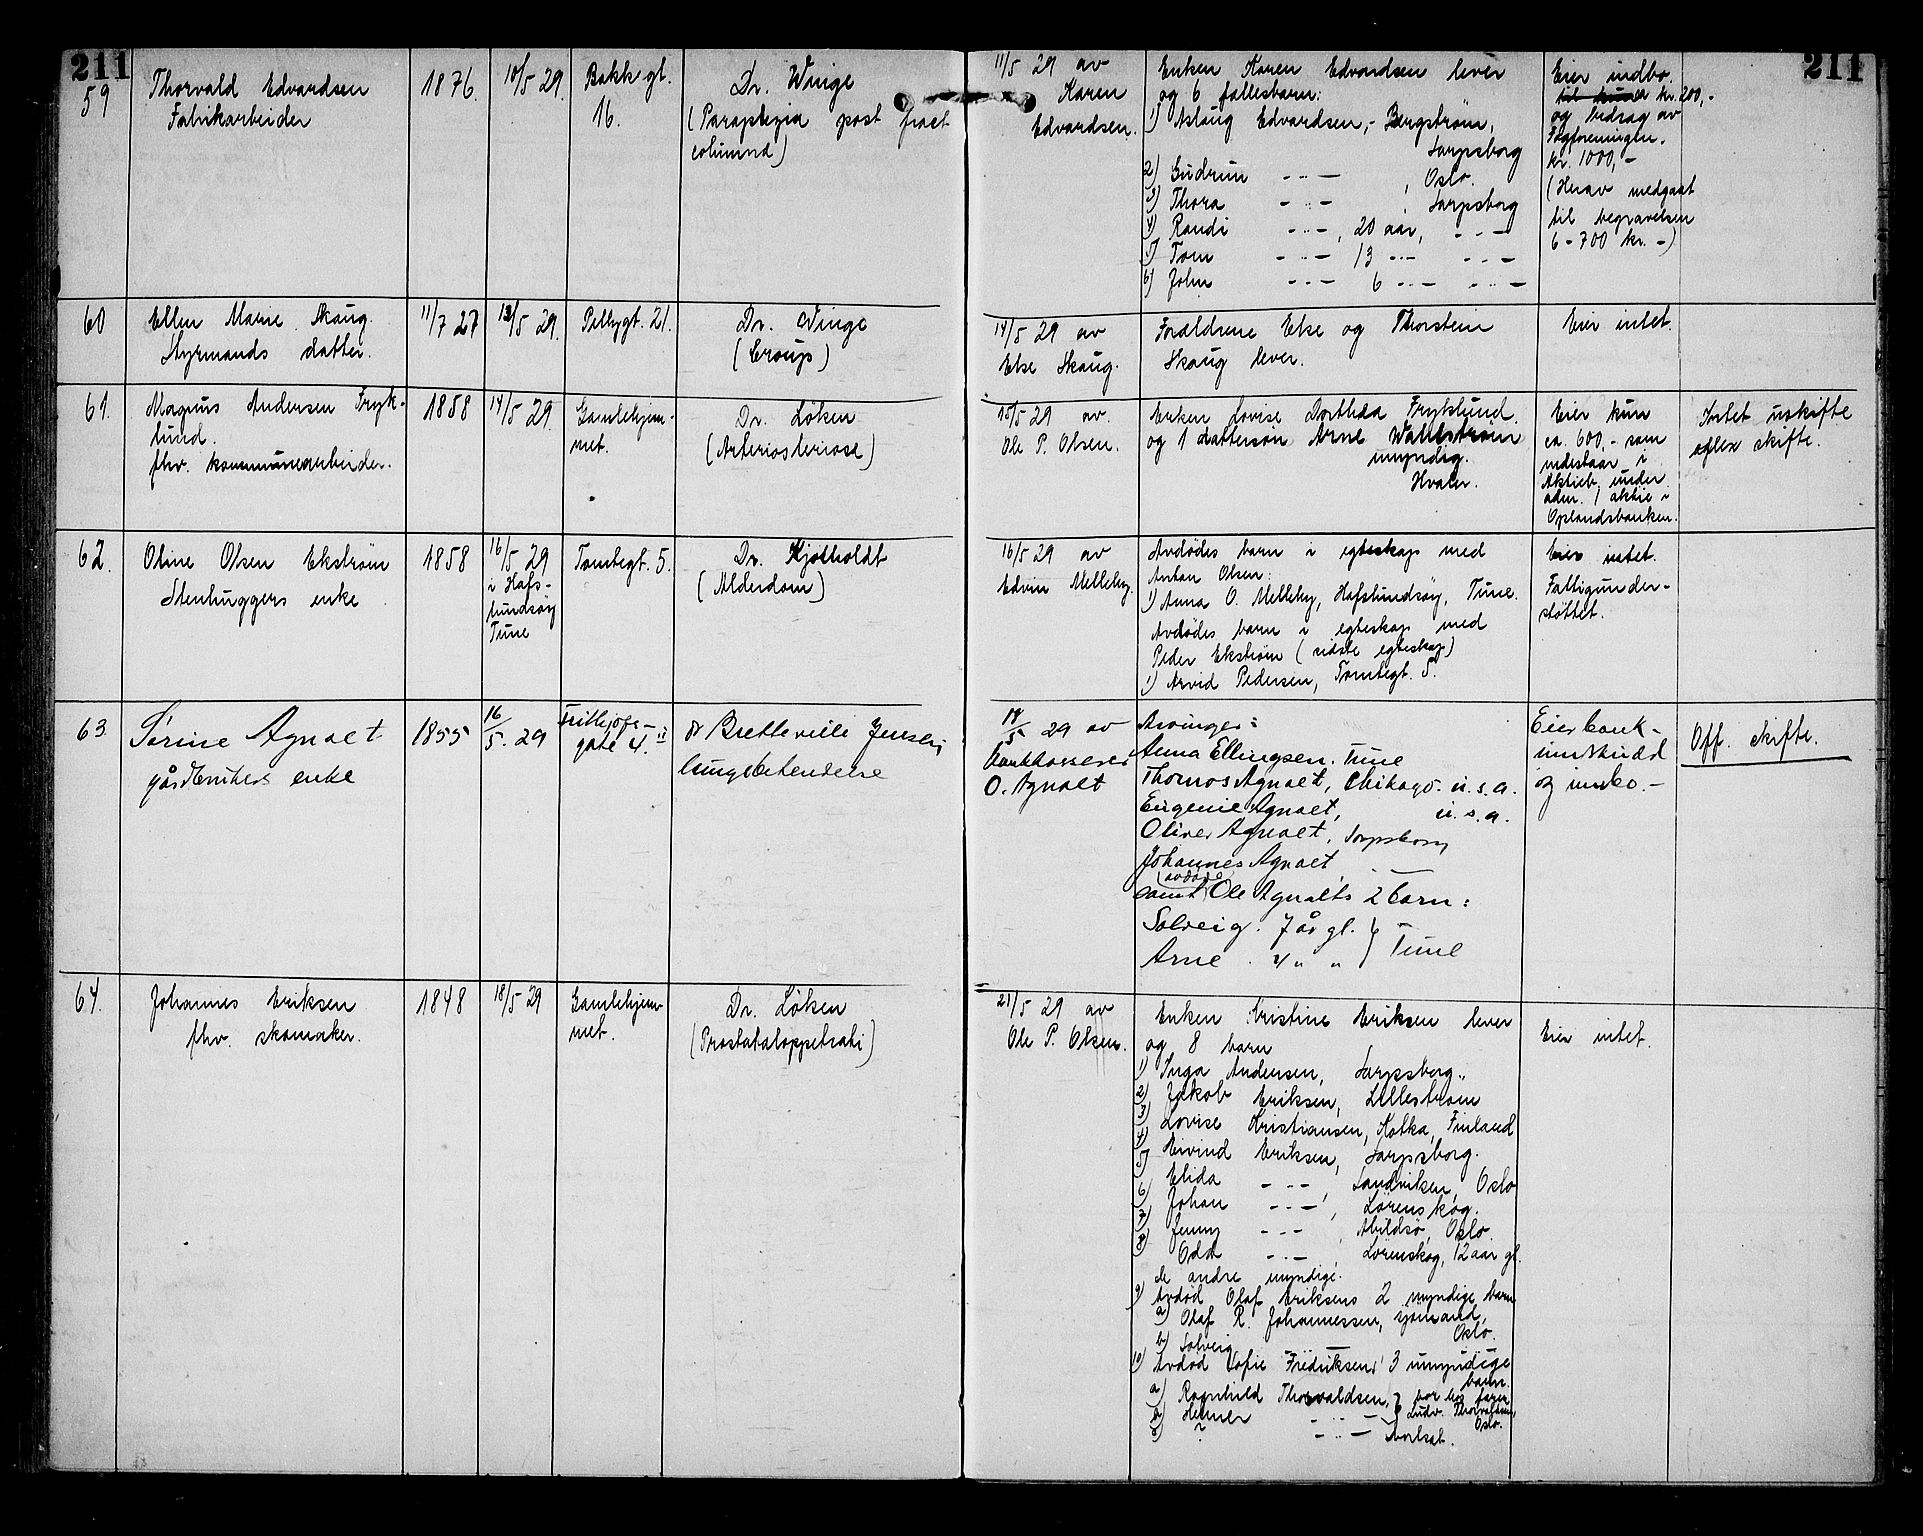 211
211
59
Thorvald Edvardsen
Fabrikarbeider
1876.
10/5 29.
Bakkegt.
16.
Dr. Winge
(Paraplegia post fract
columna)
11/5 29 av
Karen
Edvardsen.
Enken Karen Edvardsen lever
og 6 fællesbarn:
1) Aslaug Edvardsen,- Bergstrøm,
Sarpsborg
2) Gudrun -"- , Oslo.
3) Thora -"- , Sarpsborg
4) Randi -"-, 20 aar, -"-
5) Tom -"- 13 -"- -"-
6) John -"- 6 -"- -"-
Eier indbo.
kr. 200,-
og bidrag av
Fagforeningen.
kr. 1000,-
(Herav medgaat
til begravelsen
6-700 kr.-)
60
Ellen Marie Skaug
Styrmands datter.
11/7 27
13/5 29.
Pellygt. 21.
Dr. Winge
(Croup)
14/5 29 av
Else Skaug.
Forældrene Else og Thorstein
Skaug lever.
Eier intet.
61.
Magnus Andersen Fryk-
lund.
fhv. kommunearbeider.
1858
14/5 29.
Gamlehjem-
met.
Dr. Løken
(Arteriosklerose)
15/5 29 av.
Ole P. Olsen.
Enken Lovise Dorthea Fryklund.
og 1 dattersøn Arne Wahlstrøm
umyndig.
Hvaler.
Eier kun
ca. 600,- som
indestaar i
Aktieb. under
adm. 1 aktie i
Oplandsbanken.
Intet uskifte
eller skifte.
62.
Oline Olsen Ekstrøm
Stenhuggers enke
1858
16/5 29
i Hafs-
lundsøy
Tune
Tomtegt. 5.
Dr. Kjølholdt
(Alderdom)
16/5 29 av
Edvin Melleby.
Avdødes barn i egteskap med
Anton Olsen:
1) Anna O. Melleby, Hafslundsøy, Tune.
Avdødes barn i egteskap med
Peder Ekstrøm (sidste egteskap)
1) Arvid Pedersen, Tomtegt. 5.
Eier intet.
Fattigunder-
støttet.
63
Sørine Agnalt
gårdbrukers enke
1855
16/5 29
Fritjofs-
gate 4. II
dr Bretteville Jensen
lungebetendelse
18/5 29 av
bankkasserer
O. Agnalt
Arvinger:
Anna Ellingsen. Tune
Thomas Agnalt, Chikago. u.s.a.
Eugenie Agnalt, u.s.a.
Oliver Agnalt, Sarpsborg
Johannes Agnalt, -
(avdøde)
samt Ole Agnalts 2 barn:
Solveig. 7 år gl. } Tune
Arne. 4 " "
Eier bank-
innskudd
og innbo.-
Off. skifte.
64.
Johannes Eriksen
fhv. skomaker.
1848
18/5 29
Gamlehjem-
met.
Dr. Løken
21/5 29 av
Ole P. Olsen.
Enken Kristine Eriksen lever
og 8 barn
1) Inga Andersen, Sarpsborg.
2) Jakob Eriksen, Lillestrøm
3) Lovise Kristiansen, Kotka, Finland
4) Eivind Eriksen, Sarpsborg.
5) Elida -"-, Sandviken, Oslo
6) Johan -"-, Lørenskog.
7) Jenny -"-, Abildsø, Oslo.
8) Odd -"-, Lørenskog, 12 aar gl.
de andre myndige.
9) Avdød Olaf Eriksens 2 myndige barn
a) Olaf R. Johannessen, sjømand,
Oslo.
b) Solveig -"-
10) Avdød Sofie Fredriksens 3 umyndige
barn.
a) Ragnhild Thorvaldsen, } bor hos faren
b) Helmer -"- Ludv. Thorvaldsen,
Oslo.
c) ? -"- bortsat.
Eier intet.